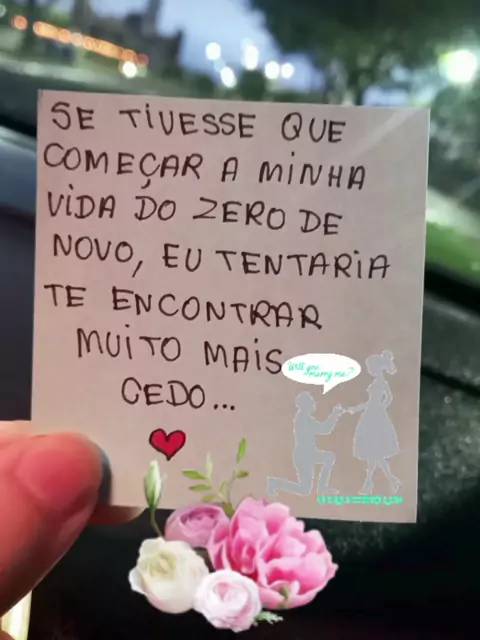 SE TIVESSE QUE
COMEÇAR A MINHA
VIDA DO ZERO DE
NOVO, EU TENTARIA
TE ENCONTRAR
MUITO MAIS
CEDO...
Will you
marry me?